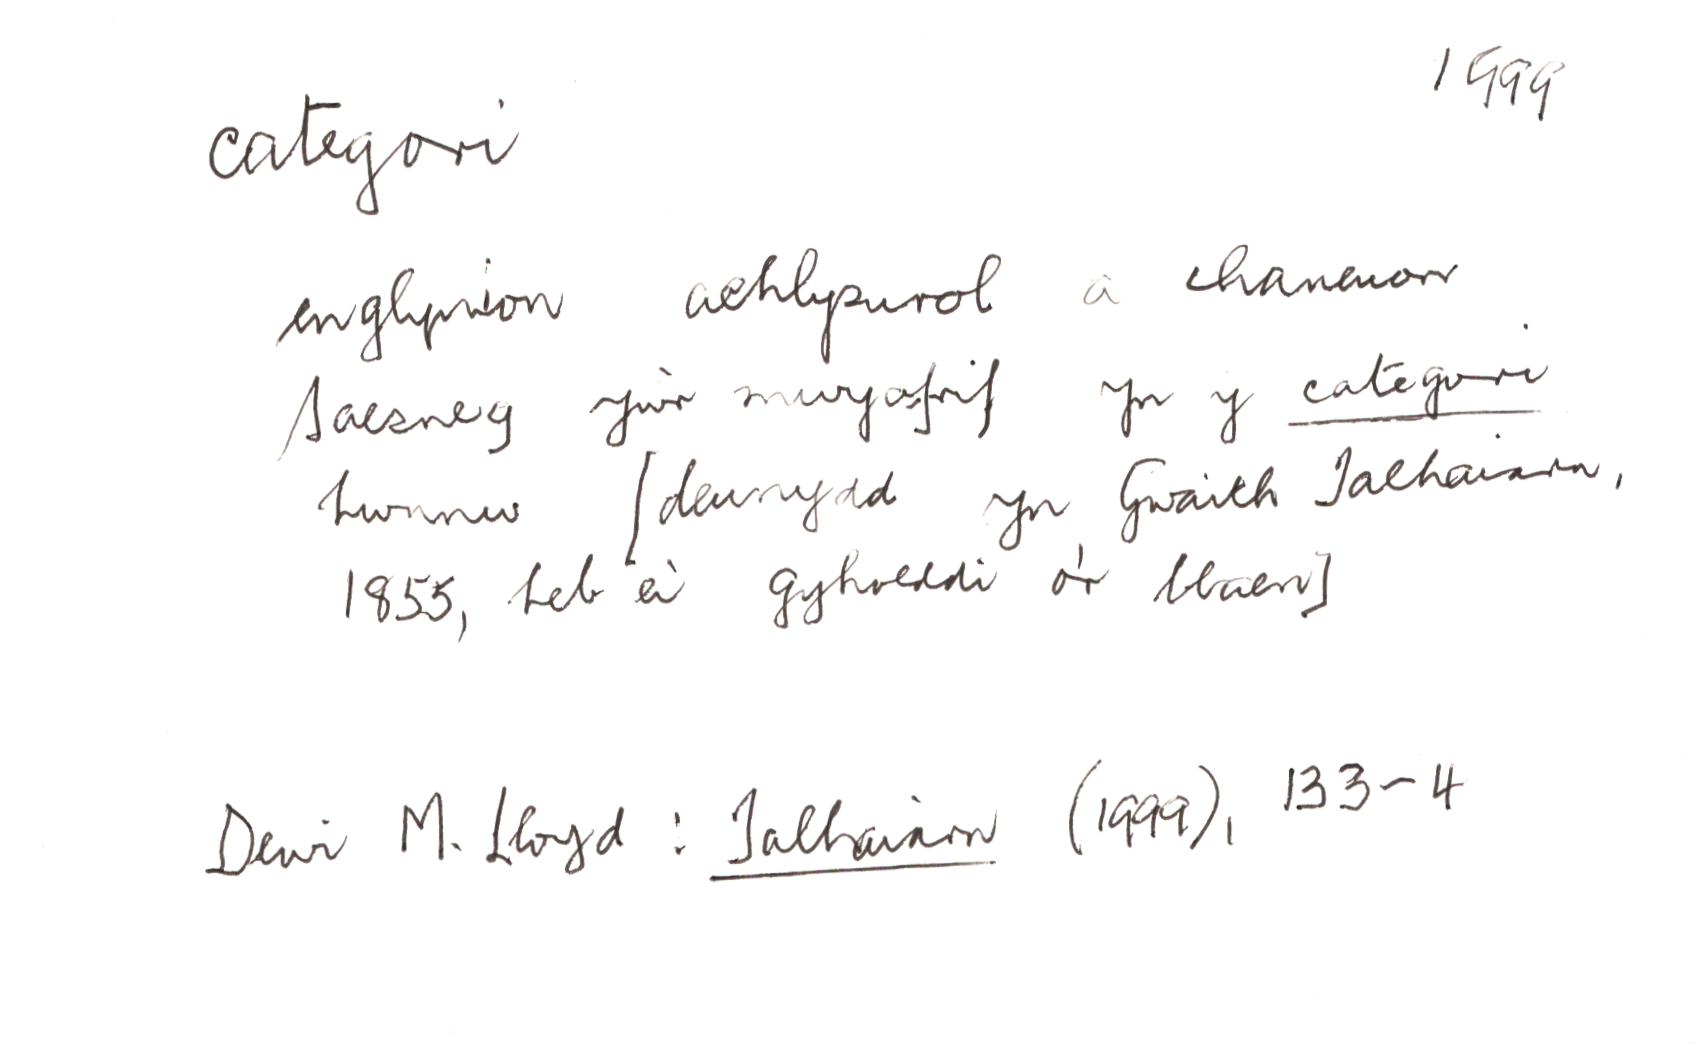 1999
categori
englynion achlysurol a chaneuon
Saesneg yw'r mwyafrif yn y categori
hwnnw [deunydd yn Gwaith Talhaiarn,
1855, heb ei gyhoeddi o'r blaen]
Dewi M. Lloyd : Talhaiarn (1999), 133-4